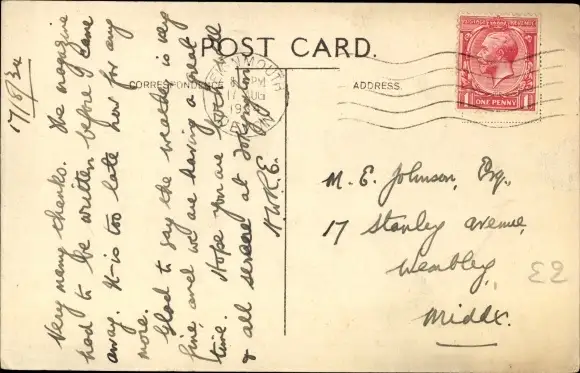 POST CARD.
CORRESPONDENCE
ADDRESS.
POSTAGE REVENUE
ONE PENNY
1 1
MOUTH
PM
17 AUG
19
17/8/34
Very many thanks. The magazine
had to be written before I came
away. It is too late now for any
more.
Glad to say the weather is very
fine, and we are having a great
time. Hope you are all
& all serene at Tokyngton
N.W.R.E.
M. E. Johnson, Esq.,
17 Stanley Avenue,
Wembley,
Middx.
E2